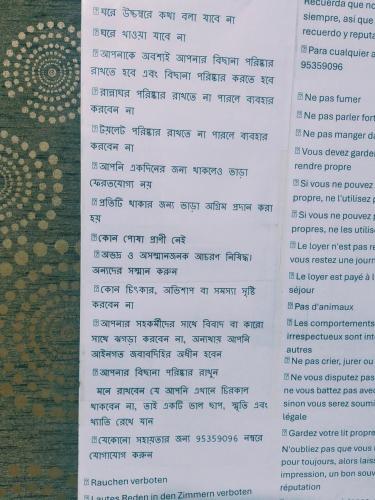 ঘরে উচ্চস্বরে কথা বলা যাবে না
ঘরে খাওয়া যাবে না
আপনাকে অবশ্যই আপনার বিছানা পরিষ্কার
রাখতে হবে এবং বিছানা পরিষ্কার করতে হবে
রান্নাঘর পরিষ্কার রাখতে না পারলে ব্যবহার
করবেন না
টয়লেট পরিষ্কার রাখতে না পারলে ব্যবহার
করবেন না
আপনি একদিনের জন্য থাকলেও ভাড়া
ফেরতযোগ্য নয়
প্রতিটি থাকার জন্য ভাড়া অগ্রিম প্রদান করা
হয়
কোন পোষা প্রাণী নেই
অভদ্র ও অসম্মানজনক আচরণ নিষিদ্ধ।
অন্যদের সম্মান করুন
কোন চিৎকার, অভিশাপ বা সমস্যা সৃষ্টি
করবেন না
আপনার সহকর্মীদের সাথে বিবাদ বা কারো
সাথে ঝগড়া করবেন না, অন্যথায় আপনি
আইনগত জবাবদিহির অধীন হবেন
আপনার বিছানা পরিষ্কার রাখুন
মনে রাখবেন যে আপনি এখানে চিরকাল
থাকবেন না, তাই একটি ভাল ছাপ, স্মৃতি এবং
খ্যাতি রেখে যান
যেকোনো সহায়তার জন্য 95359096 নম্বরে
যোগাযোগ করুন
Rauchen verboten
Lautes Reden in den Zimmern verboten
Recuerda que no
siempre, así que
recuerdo y reputa
Para cualquier a
95359096
Ne pas fumer
Ne pas parler fort
Ne pas manger da
Vous devez garder
rendre propre
Si vous ne pouvez
propre, ne l'utilisez p
Si vous ne pouvez p
propres, ne les utilise
Le loyer n'est pas re
vous restez une journ
Le loyer est payé à l
séjour
Pas d'animaux
Les comportements
irrespectueux sont int
autres
Ne pas crier, jurer ou
Ne vous disputez pas
ne vous battez pas ave
sinon vous serez soumi
légale
Gardez votre lit propre
N'oubliez pas que vous
pour toujours, alors laiss
impression, un bon souv
réputation